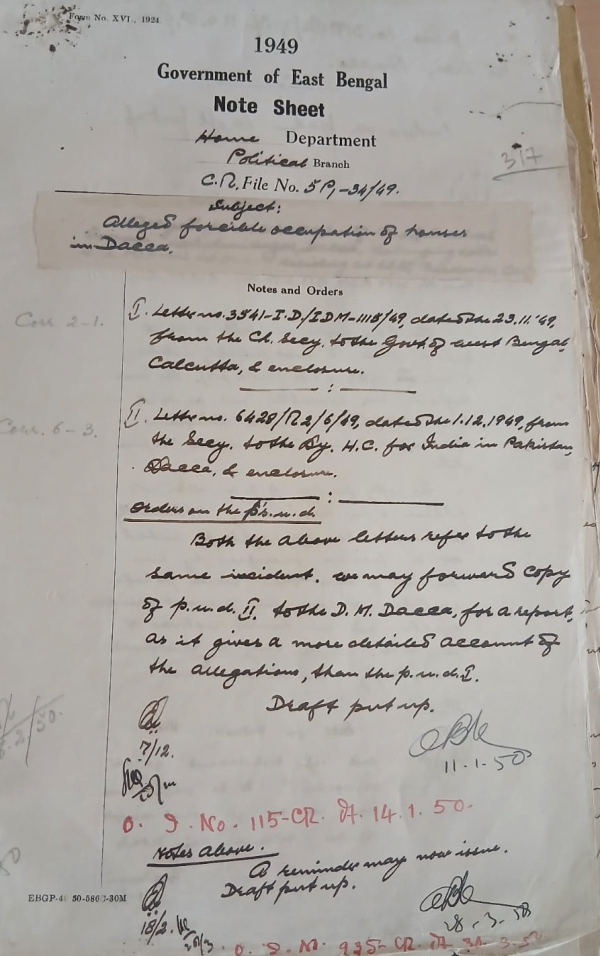 Form No. XVI, 1924
1949
Government of East Bengal
Note Sheet
Home Department
Political Branch
317
C.R. File No. 5P,-34/49.
Subject:
Alleged forcible occupation of houses
in Dacca.
Notes and Orders
Corr. 2-1.
I. Letter no. 3541-I.D/IDM-1115/49, dated the 23.11.'49,
from the Ch. Secy. to the Govt. of West Bengal,
Calcutta, & enclosure.
Corr. 6-3.
II. Letter no. 6428/R2/6/49, dated the 1.12.1949, from
the Secy. to the Dy. H.C. for India in Pakistan,
Dacca, & enclosure.
Orders on the p's.u.d.
Both the above letters refer to the
same incident. We may forward copy
of p.u.d. II. to the D.M. Dacca, for a report,
as it gives a more detailed account of
the allegations, than the p.u.d. I.
Draft put up.
7/12.
11.1.50
O. I. No. 115-CR. dt. 14.1.50.
Notes above.
A reminder may now issue.
Draft put up.
EBGP-4 50-580 -30M
18/2.
O. I. No. 925-CR. dt. 31.3.50